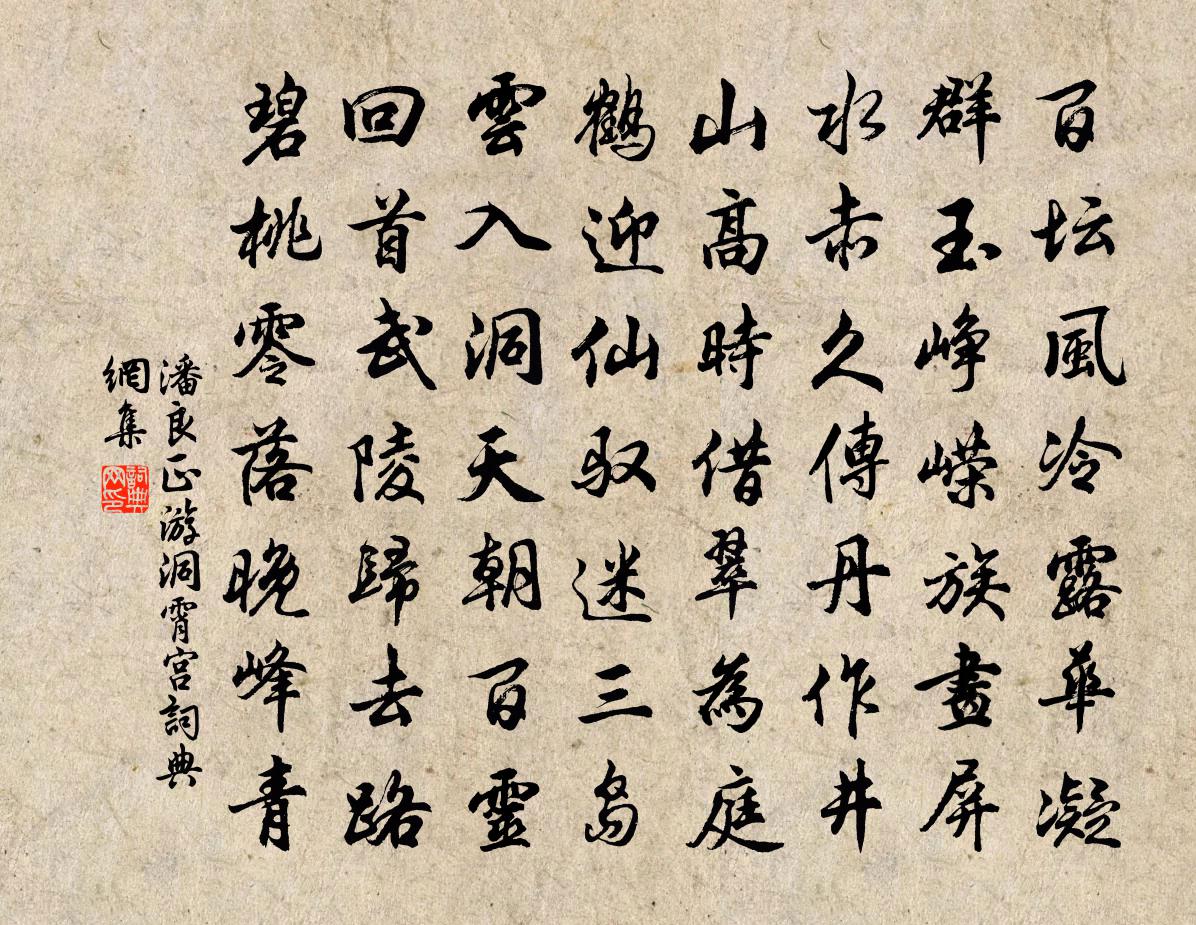 百坛風冷露華凝
群玉峥嵘族畫屏
水赤久傳丹作井
山高時借翠為庭
鶴迎仙驭迷三島
雲入洞天朝百靈
回首武陵歸去路
碧桃零落晚峰青
潘良正游洞霄宫詞典
網集
詞典
网印